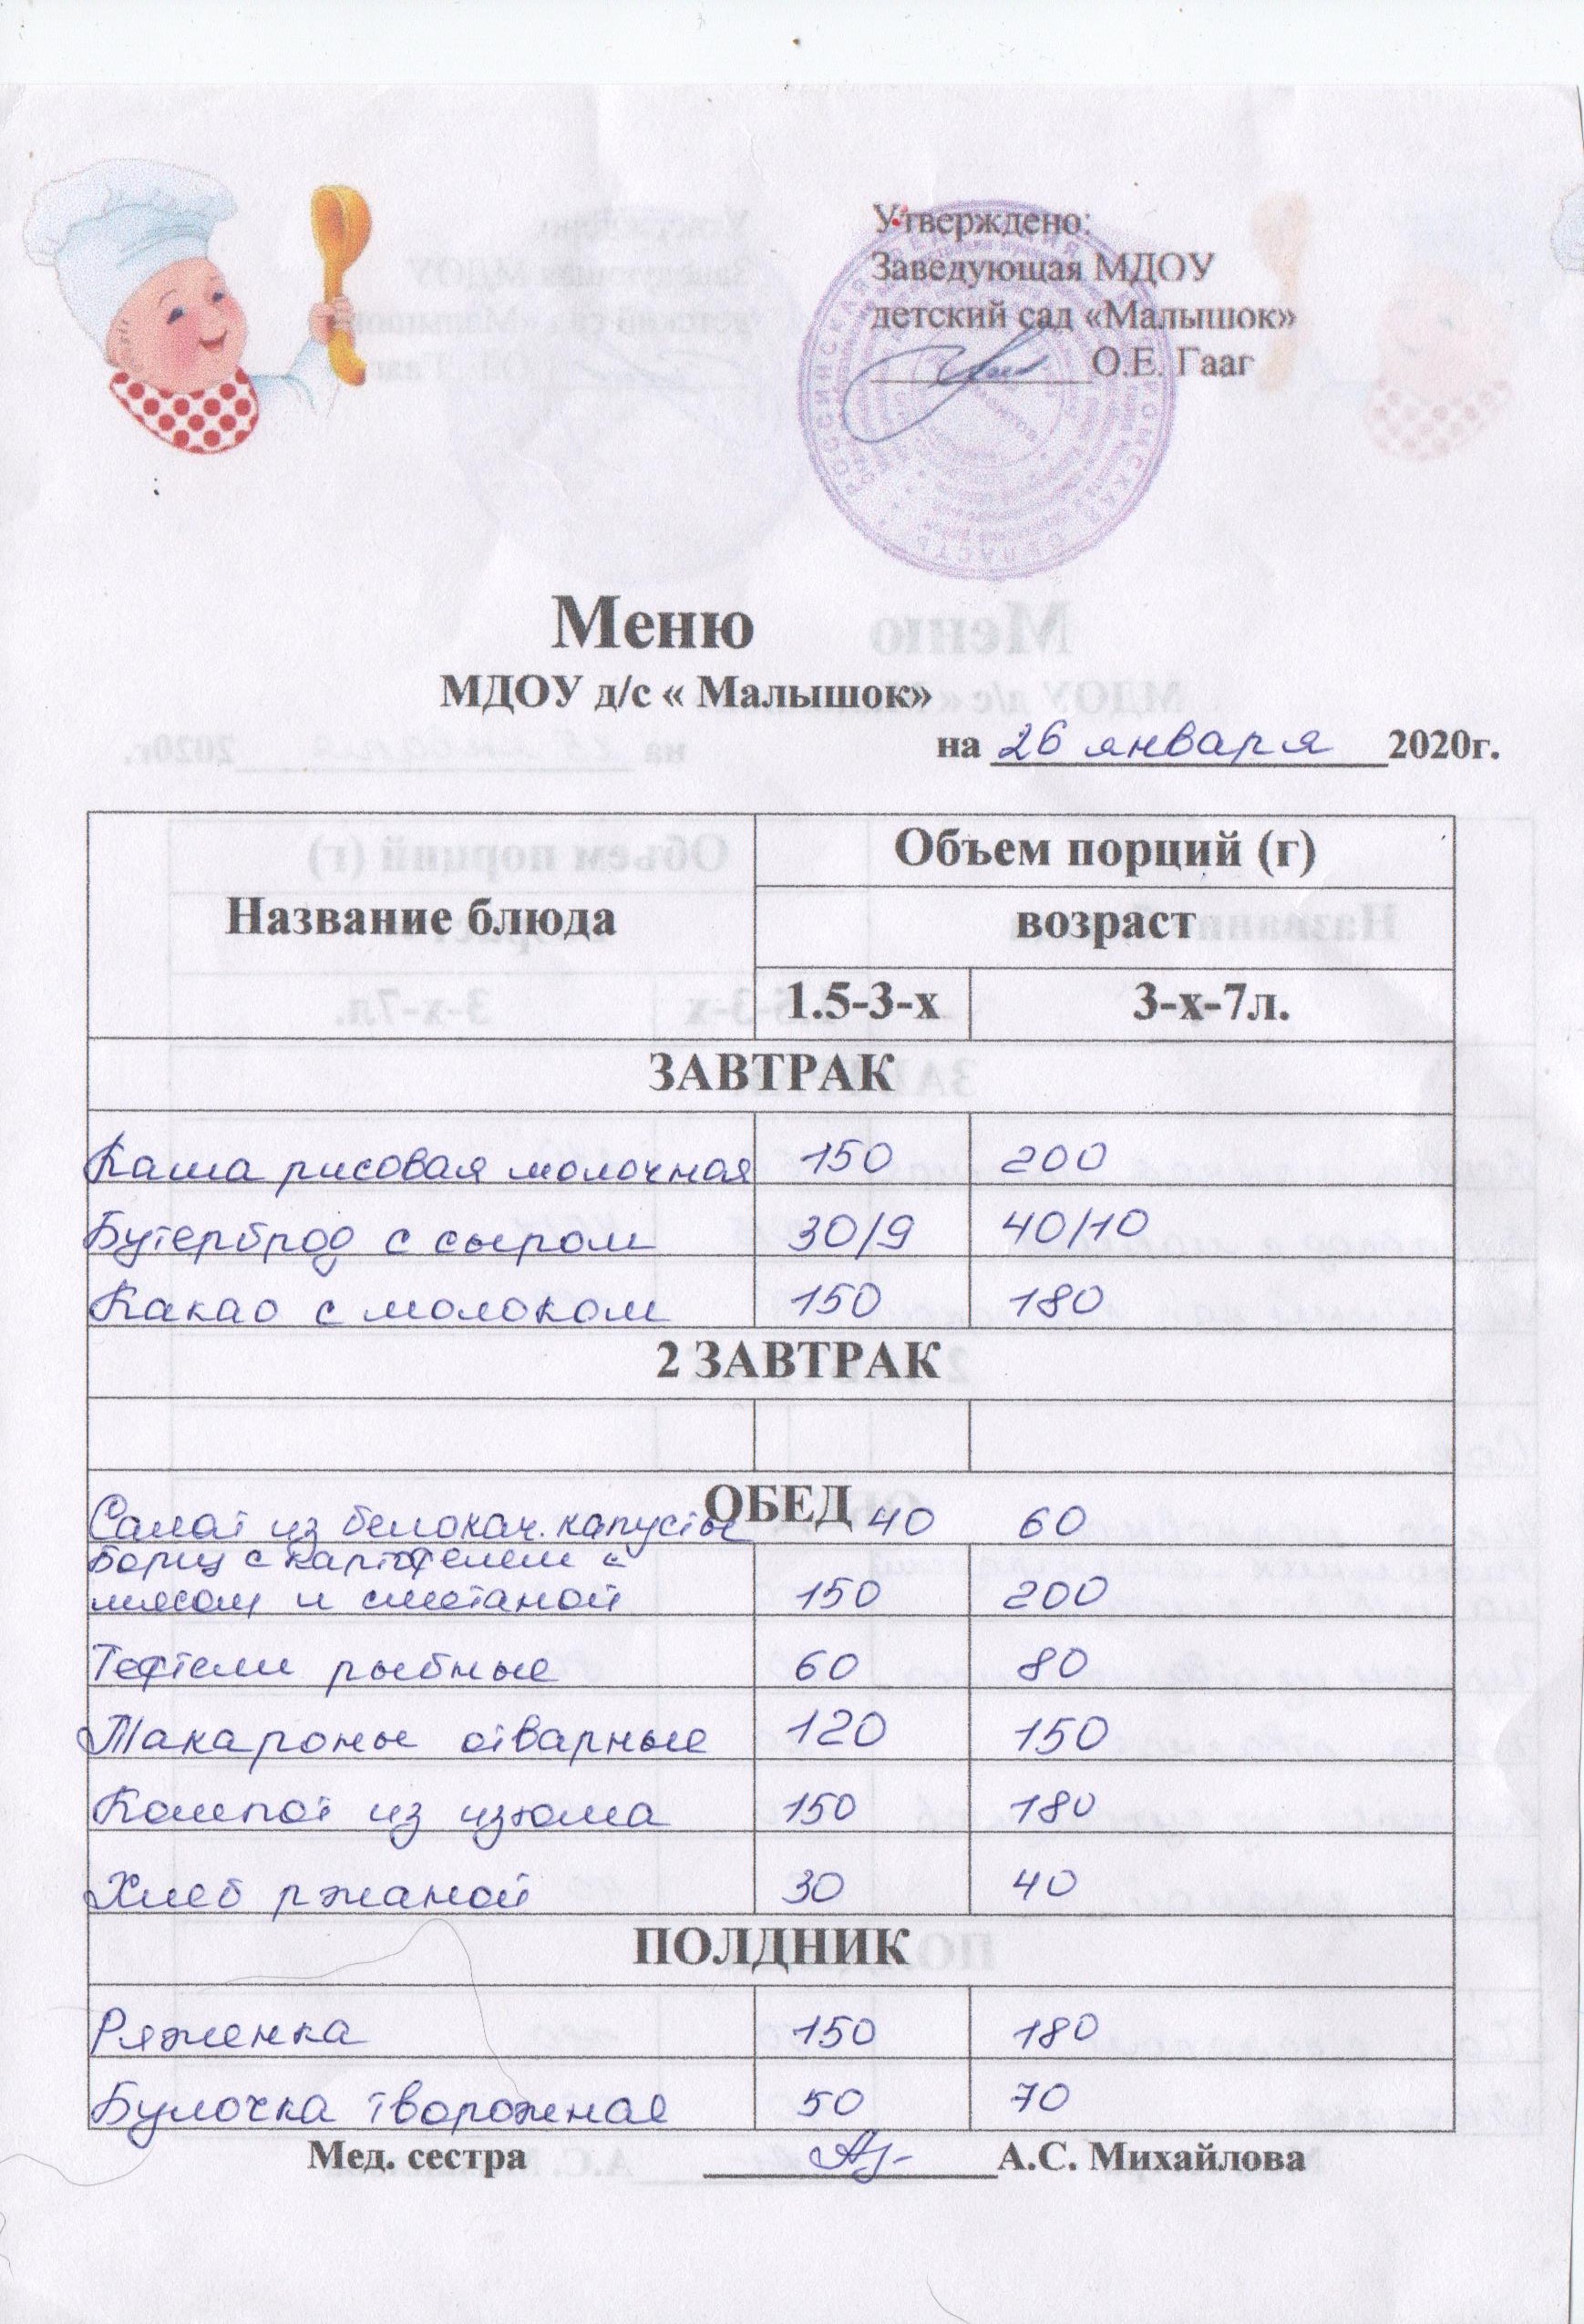 Утверждено:
Заведующая МДОУ
детский сад «Малышок»
О.Е. Гааг
РОССИЙСКАЯ ФЕДЕРАЦИЯ
ОБЛАСТЬ
Меню
МДОУ д/с « Малышок»
на 26 января 2020г.
Название блюда
Объем порций (г)
возраст
1.5-3-х 3-х-7л.
ЗАВТРАК
Каша рисовая молочная 150 200
Бутерброд с сыром 30/9 40/10
Какао с молоком 150 180
2 ЗАВТРАК
ОБЕД
Салат из белокач. капусты 40 60
Борщ с картофелем
мясом и сметаной 150 200
Тефтели рыбные 60 80
Макароны отварные 120 150
Компот из изюма 150 180
Хлеб ржаной 30 40
ПОЛДНИК
Ряженка 150 180
Булочка творожная 50 70
Мед. сестра А.С. Михайлова